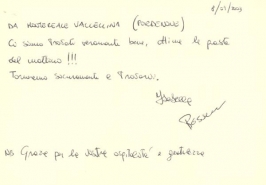 8/05/2013
DA MONTEREALE VALCELLINA (PORDENONE)
Ci siamo trovati veramente bene, ottime le paste
del mattino !!!
Torneremo sicuramente a trovarvi.
Isabella
NB Grazie per la vostra ospitalità e gentilezza